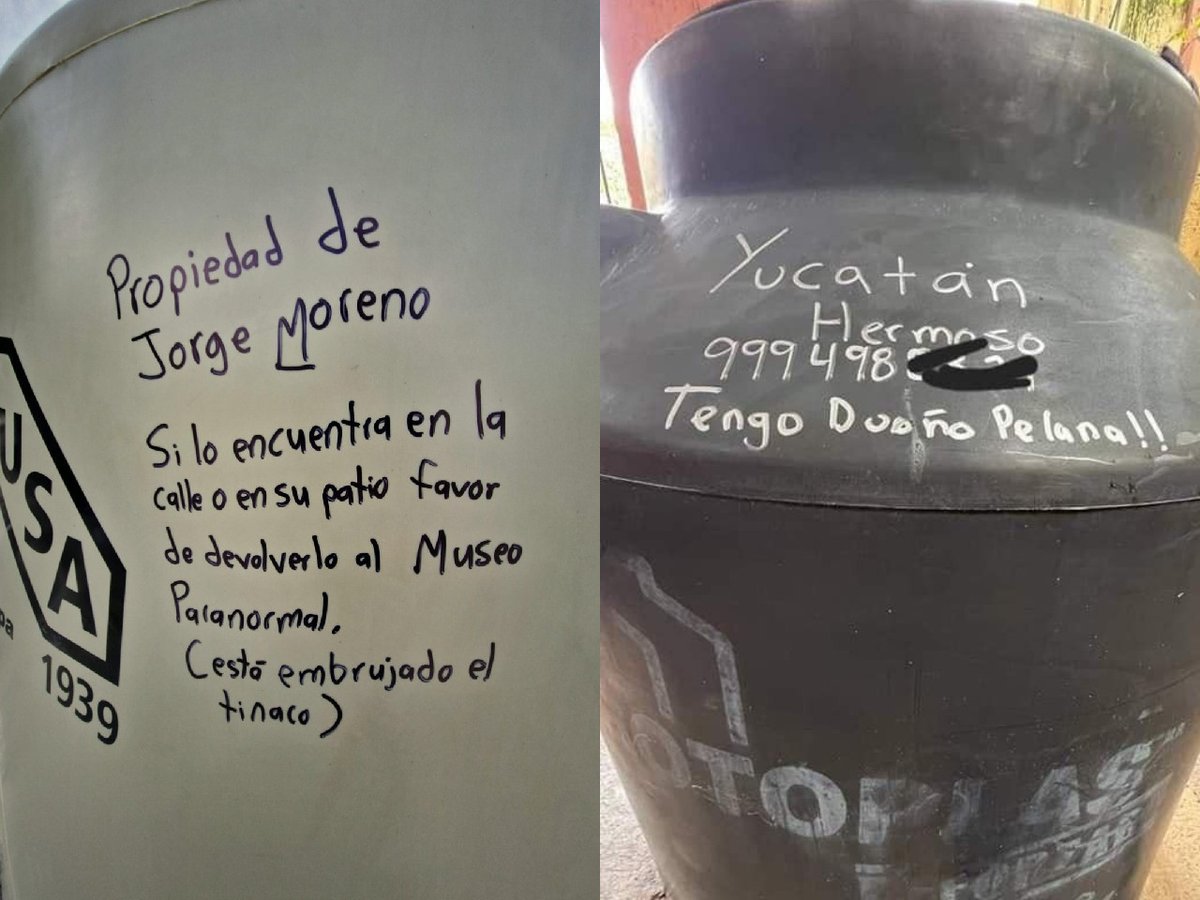 Propiedad de
Jorge Moreno
Si lo encuentra en la
calle o en su patio favor
de devolverlo al Museo
Paranormal.
(está embrujado el
tinaco)
USA
1939
Yucatán
Hermoso
999 498
Tengo Dueño Pelana!!
ROTOPLAS